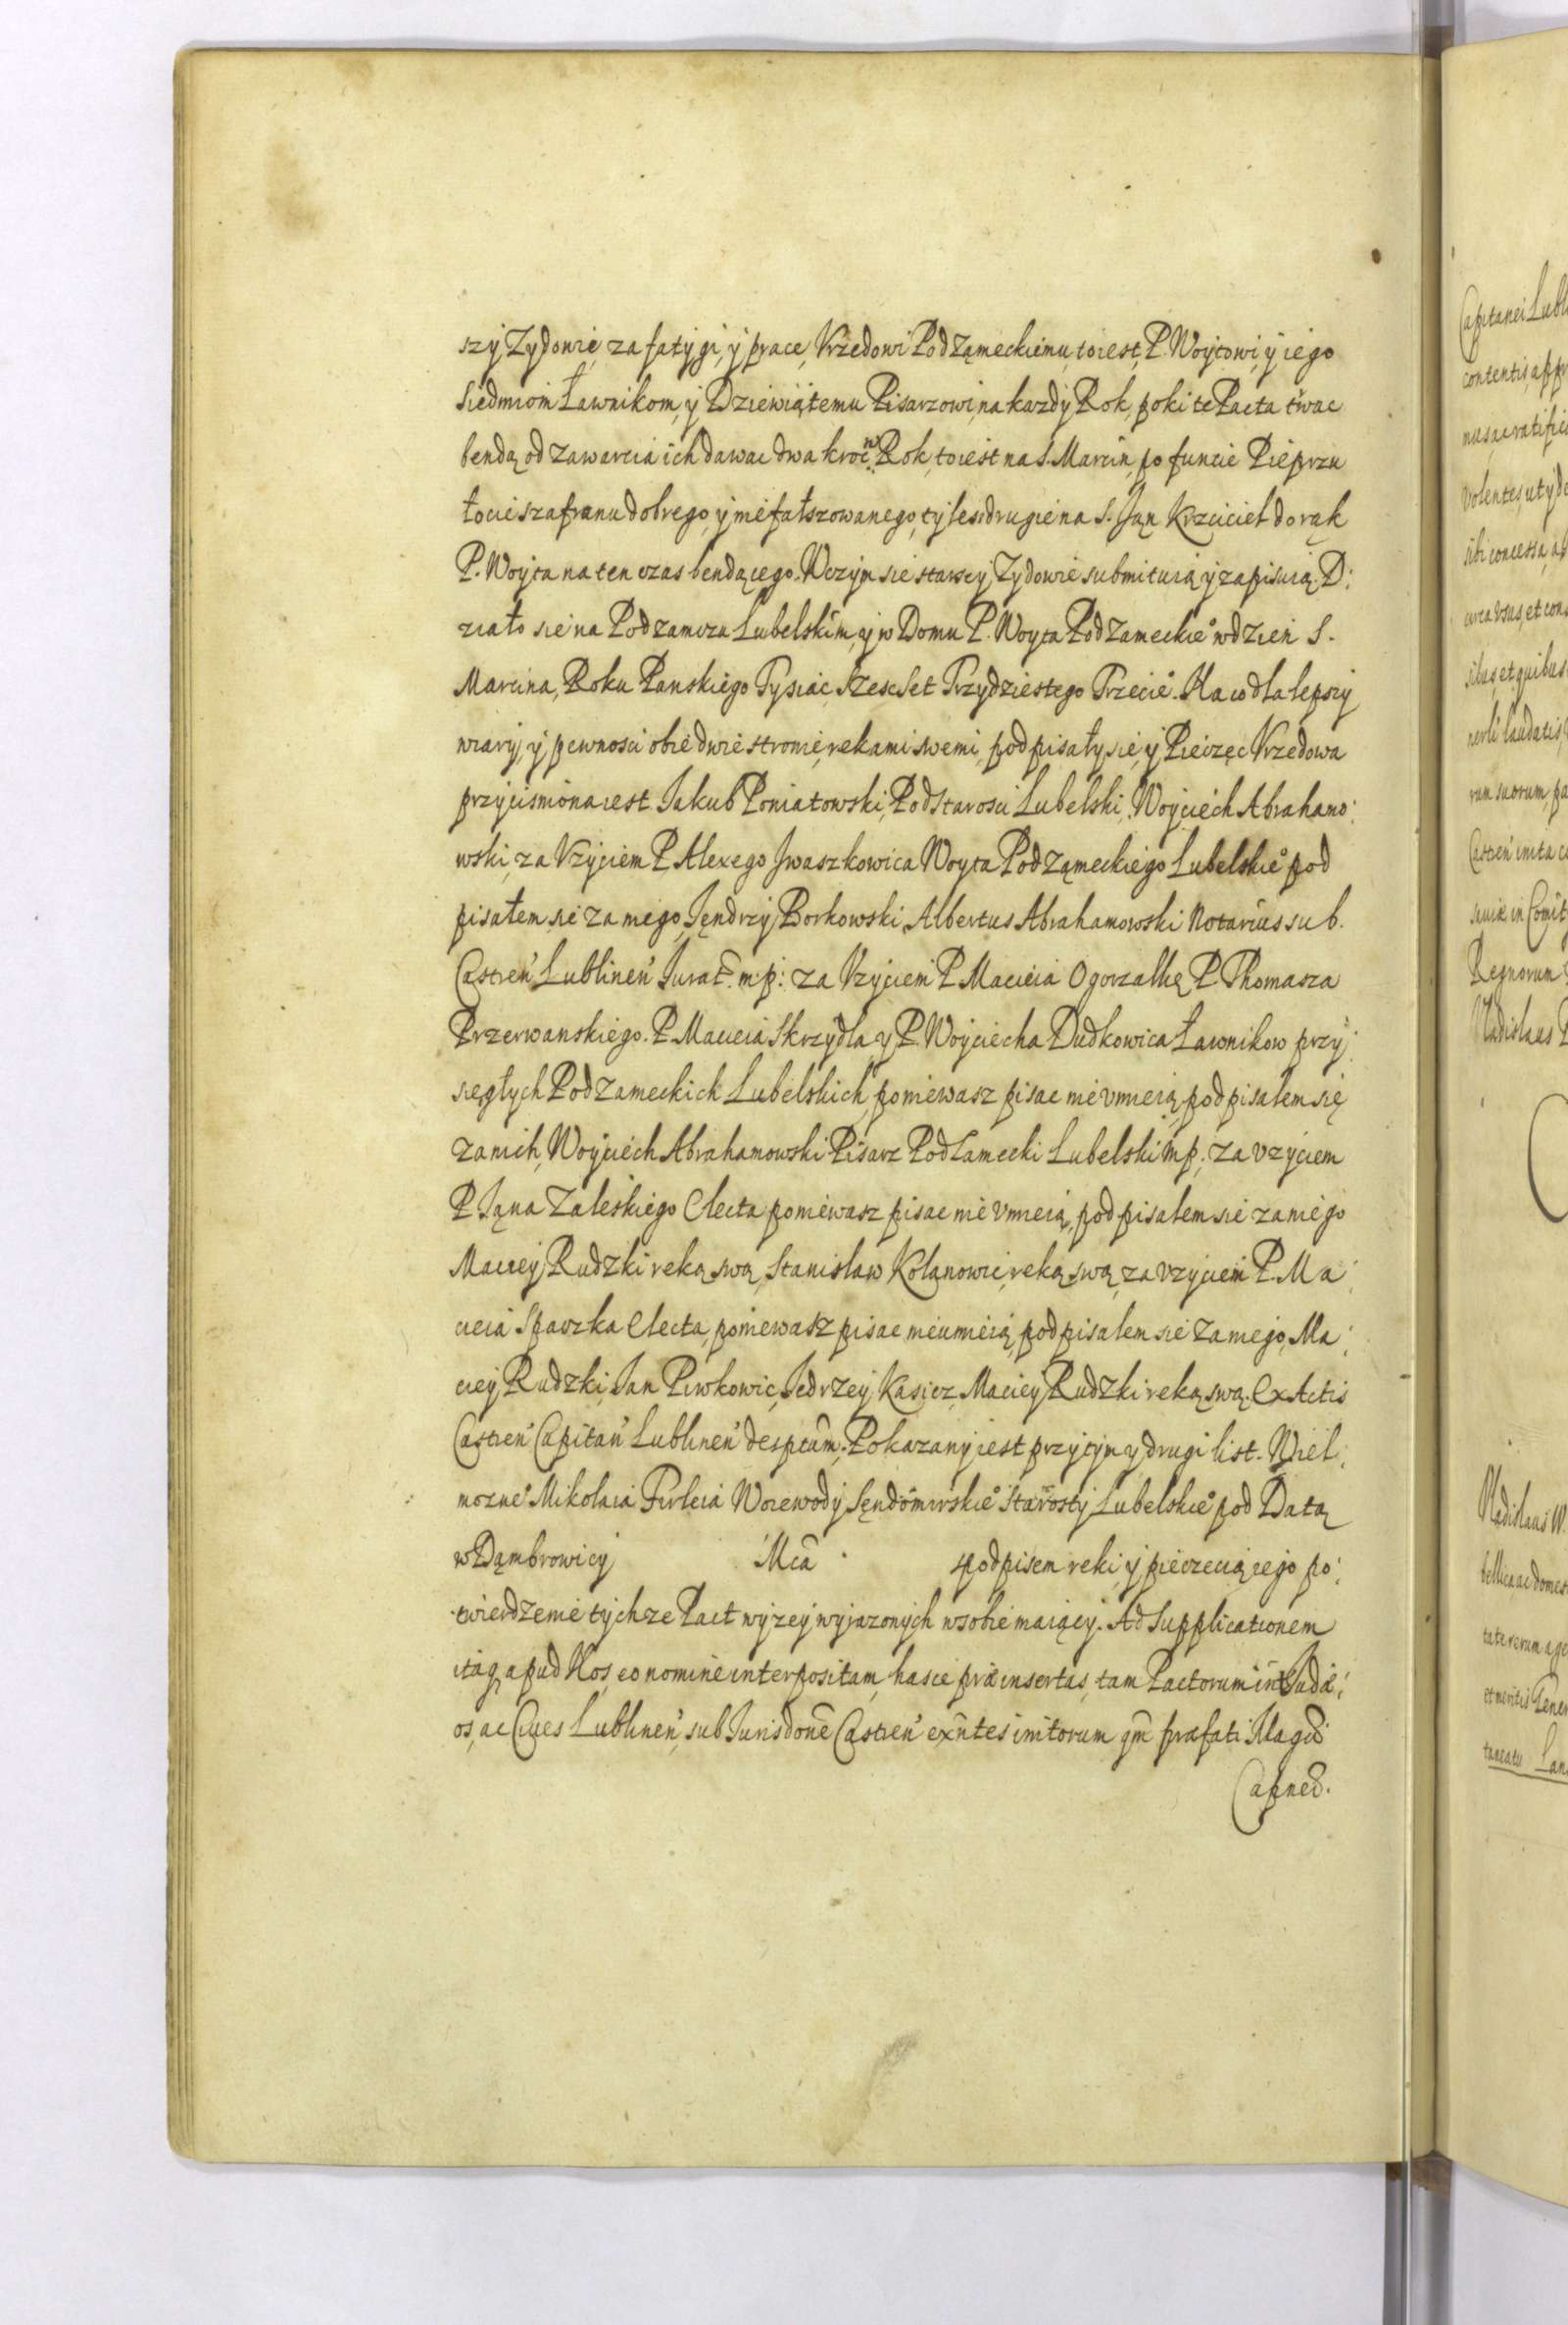 szy Zydowie, za fatygi, y prace, Vrzedowi Pod Ząmeckiemu, to iest, P. Woytowi, y iego
Siedmiom Ławnikom, y Dziewiątemu Pisarzowi, na kazdy Rok, poki te Pacta trwac
bendą od zawarcia ich dawac dwa kroc w Rok, to iest na S. Marcin, po funcie Pieprzu
łocie szafranu dobrego, y niefałszowanego, tyle si drugie na S. Jąn Krzciciel do rąk
P. Woyta na ten czas bendącego. W czym sie starszy Zydowie submituią y zapisuią. D:
ziało sie na Podzamczu Lubelskim, y w Domu P. Woyta Pod Zameckie° w dzien S.
Marcina, Roku Panskiego Tysiąc Szesc Set Trzydziestego Trzecie°. Na co dla lepszy
wiary, y pewnosci obie dwie stronie, rekami swemi, podpisały sie, y Pieczęc Vrzedowa
przycisniona iest. Jakub Poniatowski, Pod Starosci Lubelski, Woyciech Abrahamo:
wski, za Vzyciem P. Alexego Jwaszkowica Woyta Pod Ząmeckiego Lubelskie° pod
pisałem sie za niego, Jęndrzy Borkowski, Albertus Abrahamowski Notarius sub.
Castren' Lublinen' Jurat. mp: za Vzyciem P. Macieia Ogorzalką P. Thomasza
Przerwanskiego. P. Macieia Skrzydla y P. Woyciecha Dudkowica Ławnikow przy:
sięgłych Pod zameckich Lubelskich, poniewasz pisac nie vmieią, podpisalem się
za nich, Woyciech Abrahamowski Pisarz Pod Zamecki Lubelski mp: za vzyciem
P. Jąna Zaleskiego Electa poniewasz pisac nie vmieią, podpisalem sie za niego
Maciey Rudzki reką swą, Stanisław Kolanowic, reką swą, za vzyciem P. Ma:
cieia Spaczka Electa, poniewasz pisac nie umieią, podpisalem sie za niego, Ma:
ciey Rudzki, Jan Piwkowic, Jedrzey Kasicz, Maciey Rudzki reką swą. Ex Actis
Castren' Capitan' Lublinen' desptum. Pokazany iest przytym y drugi list. Wiel:
mozne° Mikolaia Firleia Woiewody Sęndomirskie° Starosty Lubelskie° pod Datą
w Dąmbrowicy Mca spodpisem reki, y pieczecią iego po:
twierdzenie tychze Pact wyzey wyrazonych w sobie maiący. Ad Supplicationem
itaq apud Nos, eo nomine interpositam, hasce præinsertas, tam Pactorum int Judæ:
os, ac Cives Lublinen', sub Jurisdone Castren' exntes initorum qm præfati Magci
Capnei.